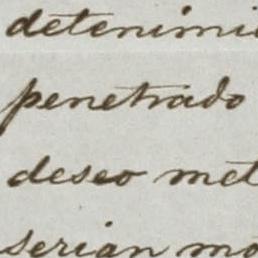 detenimi
penetrado
deseo met
serian mo